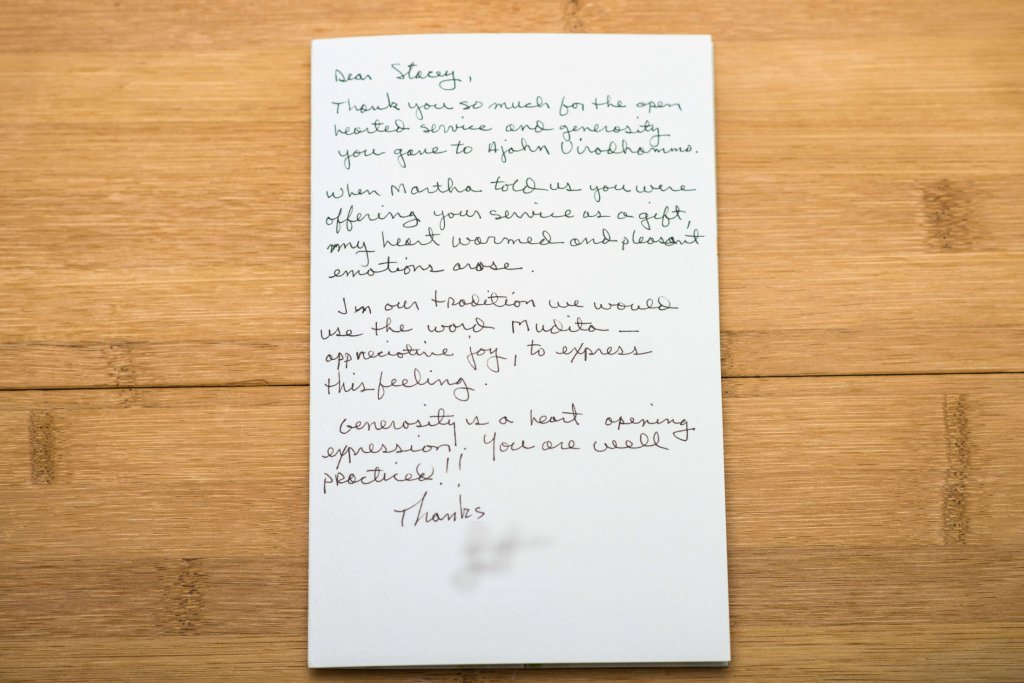 Dear Stacey,
Thank you so much for the open
hearted service and generosity
you gave to Ajahn Viradhammo.
When Martha told us you were
offering your service as a gift,
my heart warmed and pleasant
emotions arose.
In our tradition we would
use the word Mudita —
appreciative joy, to express
this feeling.
Generosity is a heart opening
expression! You are well
practiced!!
Thanks